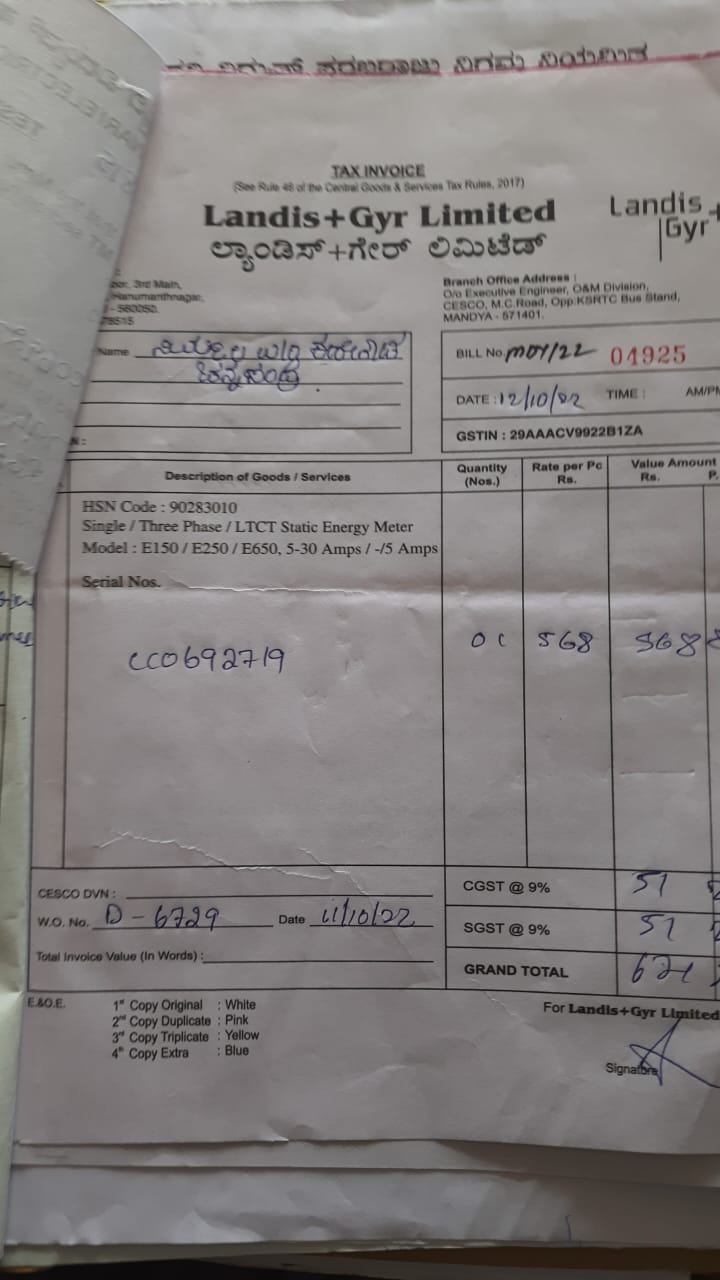 TAX INVOICE
(See Rule 46 of the Central Goods & Services Tax Rules, 2017)
Landis+Gyr Limited
ಲ್ಯಾಂಡಿಸ್+ಗೇರ್ ಲಿಮಿಟೆಡ್
Landis+
Gyr
3rd Main,
Hanumanthnagar,
- 560050.
Branch Office Address :
O/o Executive Engineer, O&M Division,
CESCO, M.C.Road, Opp.KSRTC Bus Stand,
MANDYA - 571401.
Name
BILL No 04925
DATE : 12/10/22 TIME : AM/PM
GSTIN : 29AAACV9922B1ZA
Description of Goods / Services
Quantity (Nos.)
Rate per Pc Rs.
Value Amount Rs. P.
HSN Code : 90283010
Single / Three Phase / LTCT Static Energy Meter
Model : E150 / E250 / E650, 5-30 Amps / -/5 Amps
Serial Nos.
CC0692719 568 568
CESCO DVN :
W.O. No. D - 6729 Date 11/10/22
Total Invoice Value (In Words) :
CGST @ 9% 51
SGST @ 9% 51
GRAND TOTAL
E.&O.E.
1st Copy Original : White
2nd Copy Duplicate : Pink
3rd Copy Triplicate : Yellow
4th Copy Extra : Blue
For Landis+Gyr Limited
Signature